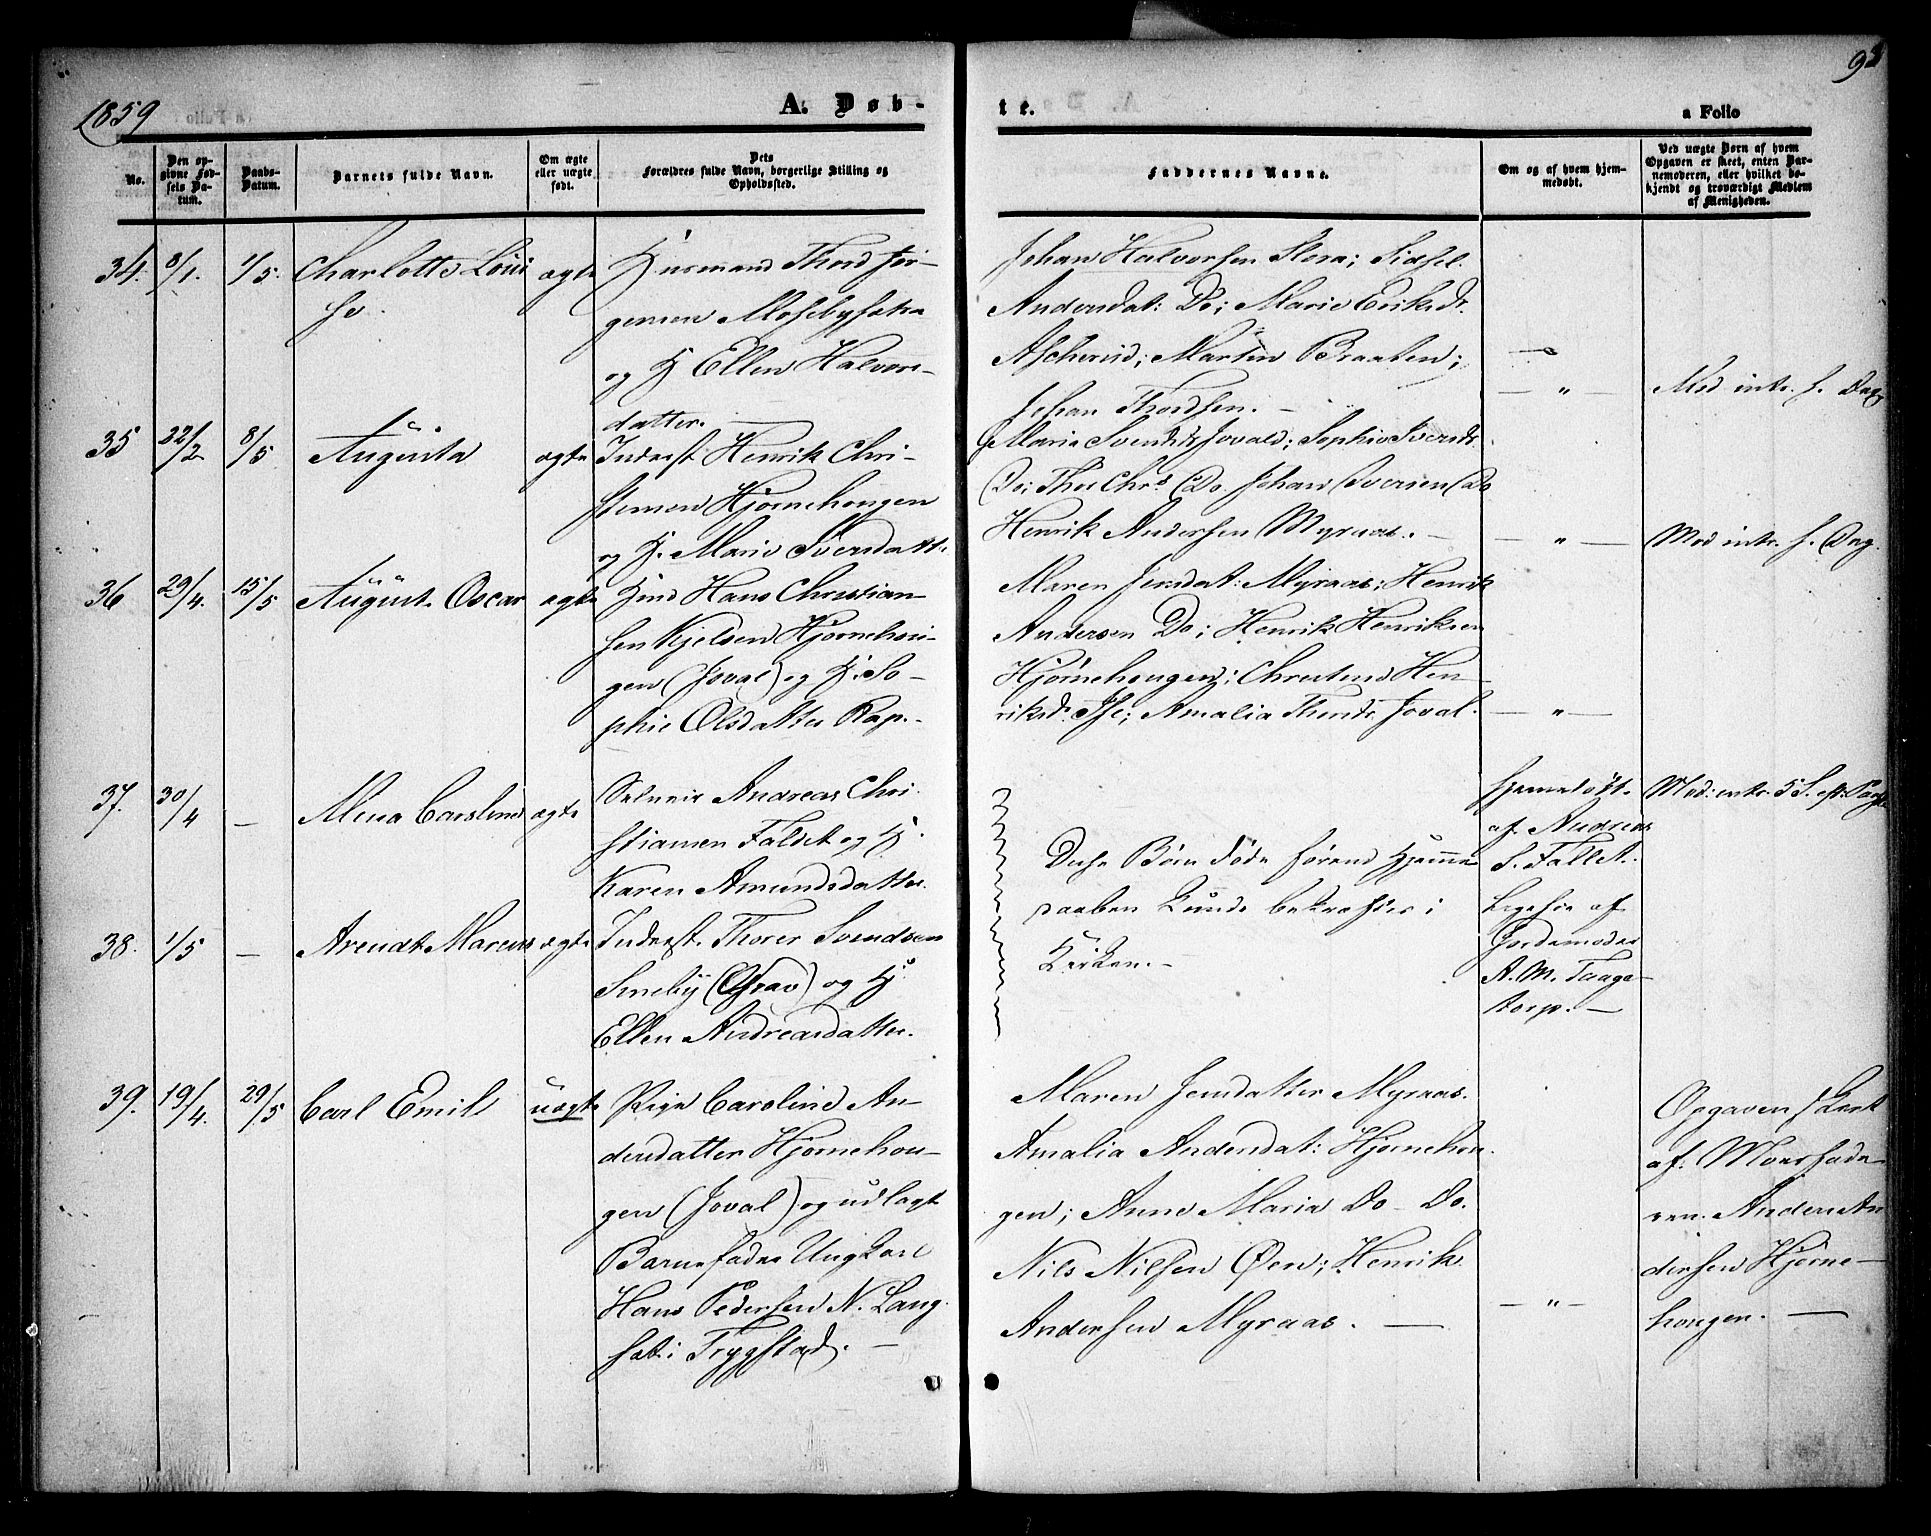 1859
A. Døb-
te.
a Folio
93
No.
Den op-
givne Fød-
sels Da-
tum.
Daabs-
Datum.
Barnets fulde Navn.
Om ægte
eller uægte
født.
Dets
Forældres fulde Navn, borgerlige Stilling og
Opholdssted.
Faddernes Navne.
Om og af hvem hjem-
medøbt.
Ved uægte Børn af hvem
Opgaven er skeet, enten Bar-
nemoderen, eller hvilket be-
kjendt og troværdigt Medlem
af Menigheden.
34. 8/1. 1/5. Charlotte Loui
se.
ægte
Husmand Thord Jör-
gensen Mosebysætra
og H Ellen Halvors-
datter.
Johan Halvorsen Slora; Sidsel
Andersdat: Do; Marie Eriksdr.
Ascherud; Martin Braaten;
Johan Thordsen. —
— " — Mod. intr. s. Dag
35 22/2 8/5 Augusta ægte
Inderst Henrik Chri-
stensen Hjørnehougen
og H. Marie Iversdatt.
Maria Svendsdr Joval; Sophie Iversdr.
Do; Chrs Do Johan Iversen Do
Henrik Andersen Myraas. —
— " — Mod intr. s. Dag.
36 29/4. 15/5 August Oscar ægte
Hans Christian-
sen Kjelsen Hjørnehou-
gen (Joval) og H. So-
phie Olsdatter Rap.-
Maren Jensdat: Myraas; Henrik
Andersen Do; Henrik Henriksen
Hjørnehougen; Christine Hen-
riksdr. Amalia Joval.
— " —
37. 30/4 — Carolina ægte
Andreas Chri-
stiansen Faldet og H.
Karen Amundsdatter.
Disse Børn døde førend Hjemme
daaben kunde bekræftes i
Kirken. —
Hjemmedøbt
af Andreas
S. Fallet.
Mod: intr. 5 S. eft. Paaske
38. 1/5 — Arendt Marcus ægte
Inderst. Thorer Svendsen
Smeby (Grav) og H
Ellen Andreasdatter.
Ligesaa af
Gjordemoder
A. M. Taage-
torp. —
39. 19/4. 29/5 Carl Emil uægte
Pige Caroline An-
dersdatter Hjørnehou-
gen (Joval) og udlagt
Barnefader Ungkarl
Hans Pedersen N. Lang-
sæt i Trygstad. —
Maren Jensdatter Myraas.
Amalia Andersdat: Hjørnehou-
gen; Anne Maria Do - Do.
Nils Nilsen Øen; Henrik
Andersen Myraas. —
— " —
Opgaven skeet
af Moersfade-
ren Anders An
dersen Hjørne-
hougen. —